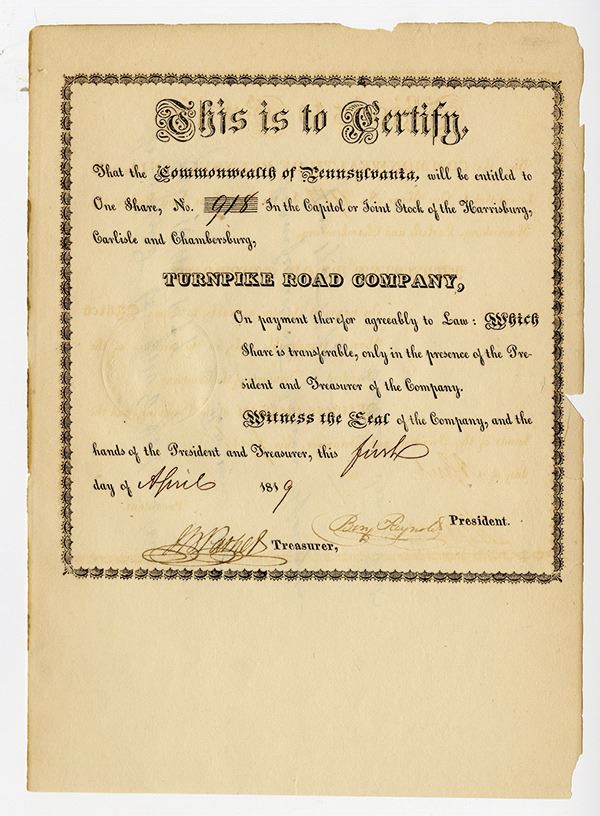 This is to Certify,
That the Commonwealth of Pennsylvania, will be entitled to
One Share, No. 918 In the Capitol or Joint Stock of the Harrisburg,
Carlisle and Chambersburg,
TURNPIKE ROAD COMPANY,
On payment therefor agreeably to Law: Which
Share is transferable, only in the presence of the Pre-
sident and Treasurer of the Company.
Witness the Seal of the Company, and the
hands of the President and Treasurer, this first
day of April 1819
Benj Reynolds President.
Treasurer,